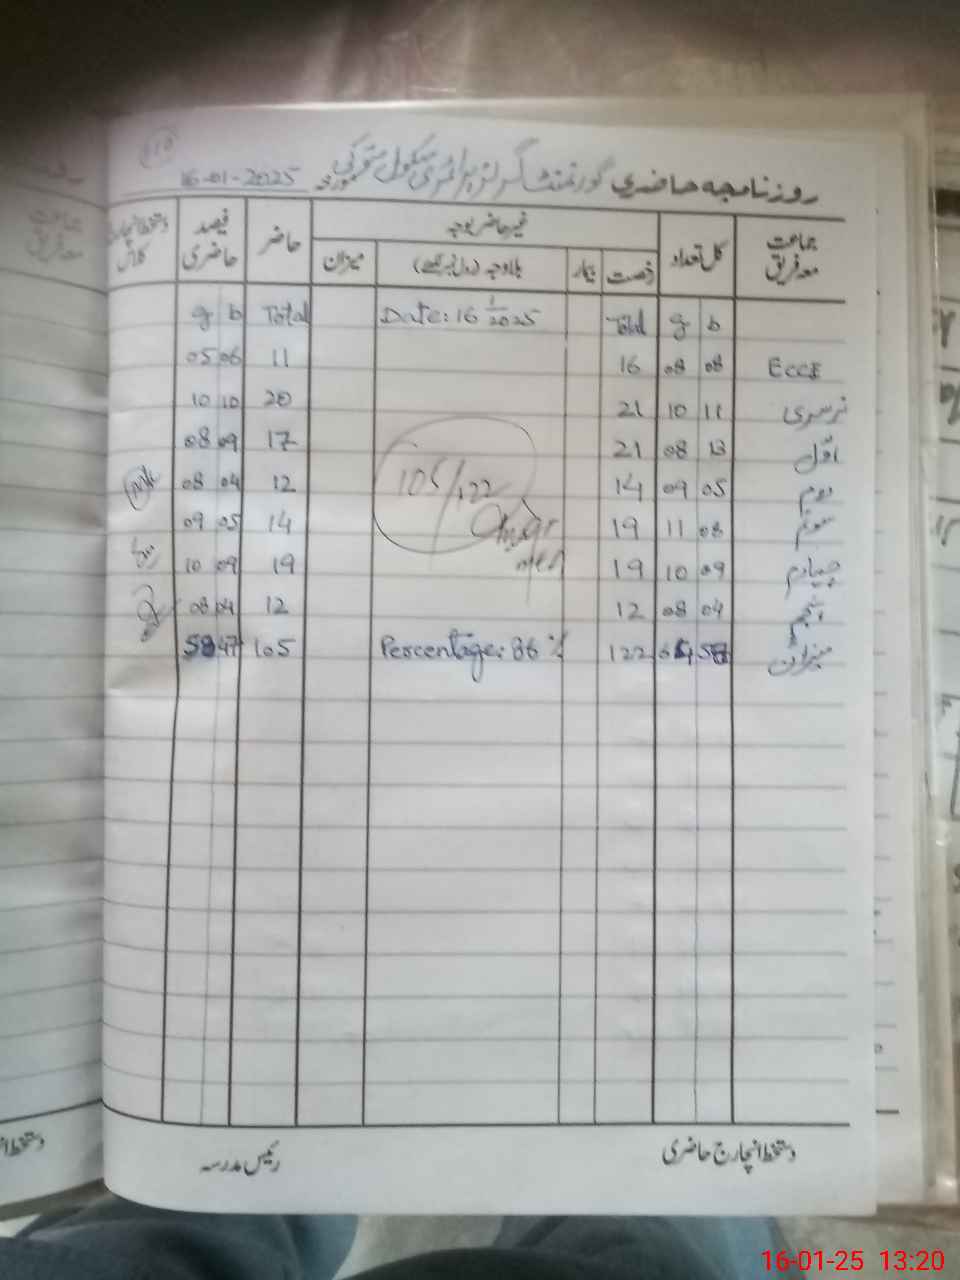 110
روزنامچہ حاضری گورنمنٹ گرلز پرائمری سکول مورخہ 16-01-2025
جماعت معہ فریق کل تعداد غیر حاضر بوجہ حاضر فیصد حاضری دستخط انچارج کلاس
رخصت بیمار بلاوجہ (رول نمبر لکھئے) میزان
b g Total Date: 16 1/2025 Total b g
ECCE 08 08 16 11 06 05
نرسری 11 10 21 20 10 10
اوّل 13 08 21 17 09 08
دوم 05 09 14 12 04 08
سوئم 08 11 19 14 05 09
چہارم 09 10 19 19 09 10
پنجم 04 08 12 12 04 08
میزان 58 64 122 Percentage: 86 % 105 47 58
105/122
دستخط انچارج حاضری
رئیس مدرسہ
16-01-25 13:20